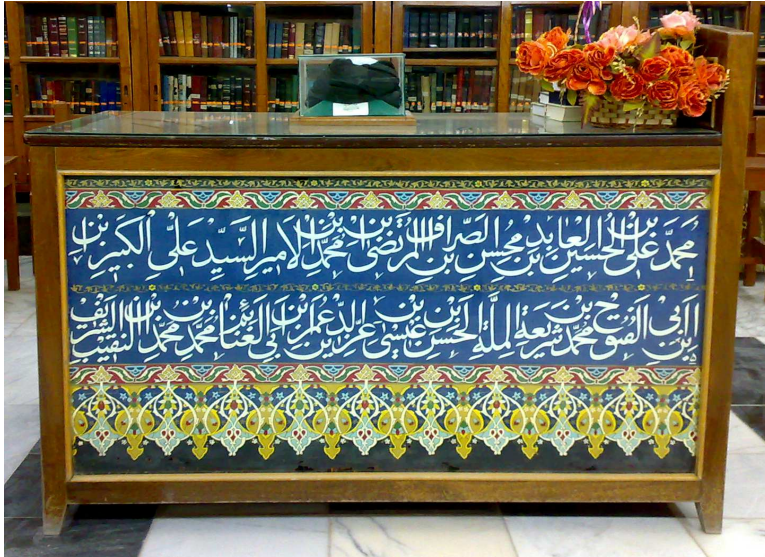 محمد علي بن الحسين العابد بن محسن بن الصراف المرتضى بن محمد بن الأمير السيد علي الكبير بن
أبي الفتوح محمد بن شريعة الملة الحسن بن عيسى بن عز الدين عمر بن أبي الغنائم محمد بن محمد النقيب الشريف